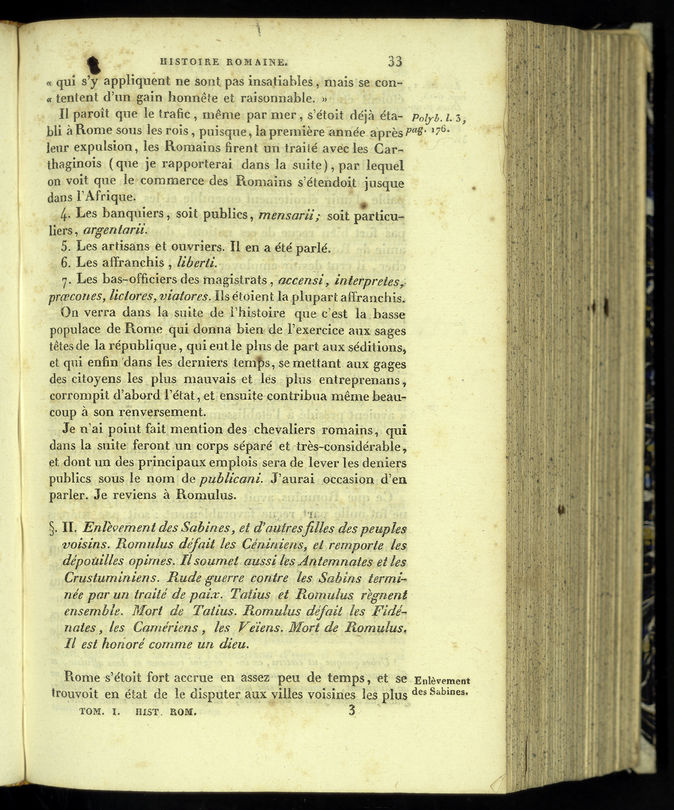 HISTOIRE ROMAINE. 33
« qui s'y appliquent ne sont pas insatiables, mais se con-
« tentent d'un gain honnête et raisonnable. »
Il paroît que le trafic, même par mer, s'étoit déjà éta-
Polyb. l. 3,
bli à Rome sous les rois, puisque, la première année après
pag. 176.
leur expulsion, les Romains firent un traité avec les Car-
thaginois (que je rapporterai dans la suite), par lequel
on voit que le commerce des Romains s'étendoit jusque
dans l'Afrique.
4. Les banquiers, soit publics, mensarii; soit particu-
liers, argentarii.
5. Les artisans et ouvriers. Il en a été parlé.
6. Les affranchis, liberti.
7. Les bas-officiers des magistrats, accensi, interpretes,
præcones, lictores, viatores. Ils étoient la plupart affranchis.
On verra dans la suite de l'histoire que c'est la basse
populace de Rome qui donna bien de l'exercice aux sages
têtes de la république, qui eut le plus de part aux séditions,
et qui enfin dans les derniers temps, se mettant aux gages
des citoyens les plus mauvais et les plus entreprenans,
corrompit d'abord l'état, et ensuite contribua même beau-
coup à son renversement.
Je n'ai point fait mention des chevaliers romains, qui
dans la suite feront un corps séparé et très-considérable,
et dont un des principaux emplois sera de lever les deniers
publics sous le nom de publicani. J'aurai occasion d'en
parler. Je reviens à Romulus.
§. II. Enlèvement des Sabines, et d'autres filles des peuples
voisins. Romulus défait les Céniniens, et remporte les
dépouilles opimes. Il soumet aussi les Antemnates et les
Crustuminiens. Rude guerre contre les Sabins termi-
née par un traité de paix. Tatius et Romulus règnent
ensemble. Mort de Tatius. Romulus défait les Fidé-
nates, les Camériens, les Veïens. Mort de Romulus.
Il est honoré comme un dieu.
Rome s'étoit fort accrue en assez peu de temps, et se
Enlèvement
trouvoit en état de le disputer aux villes voisines les plus
des Sabines.
TOM. I. HIST. ROM. 3